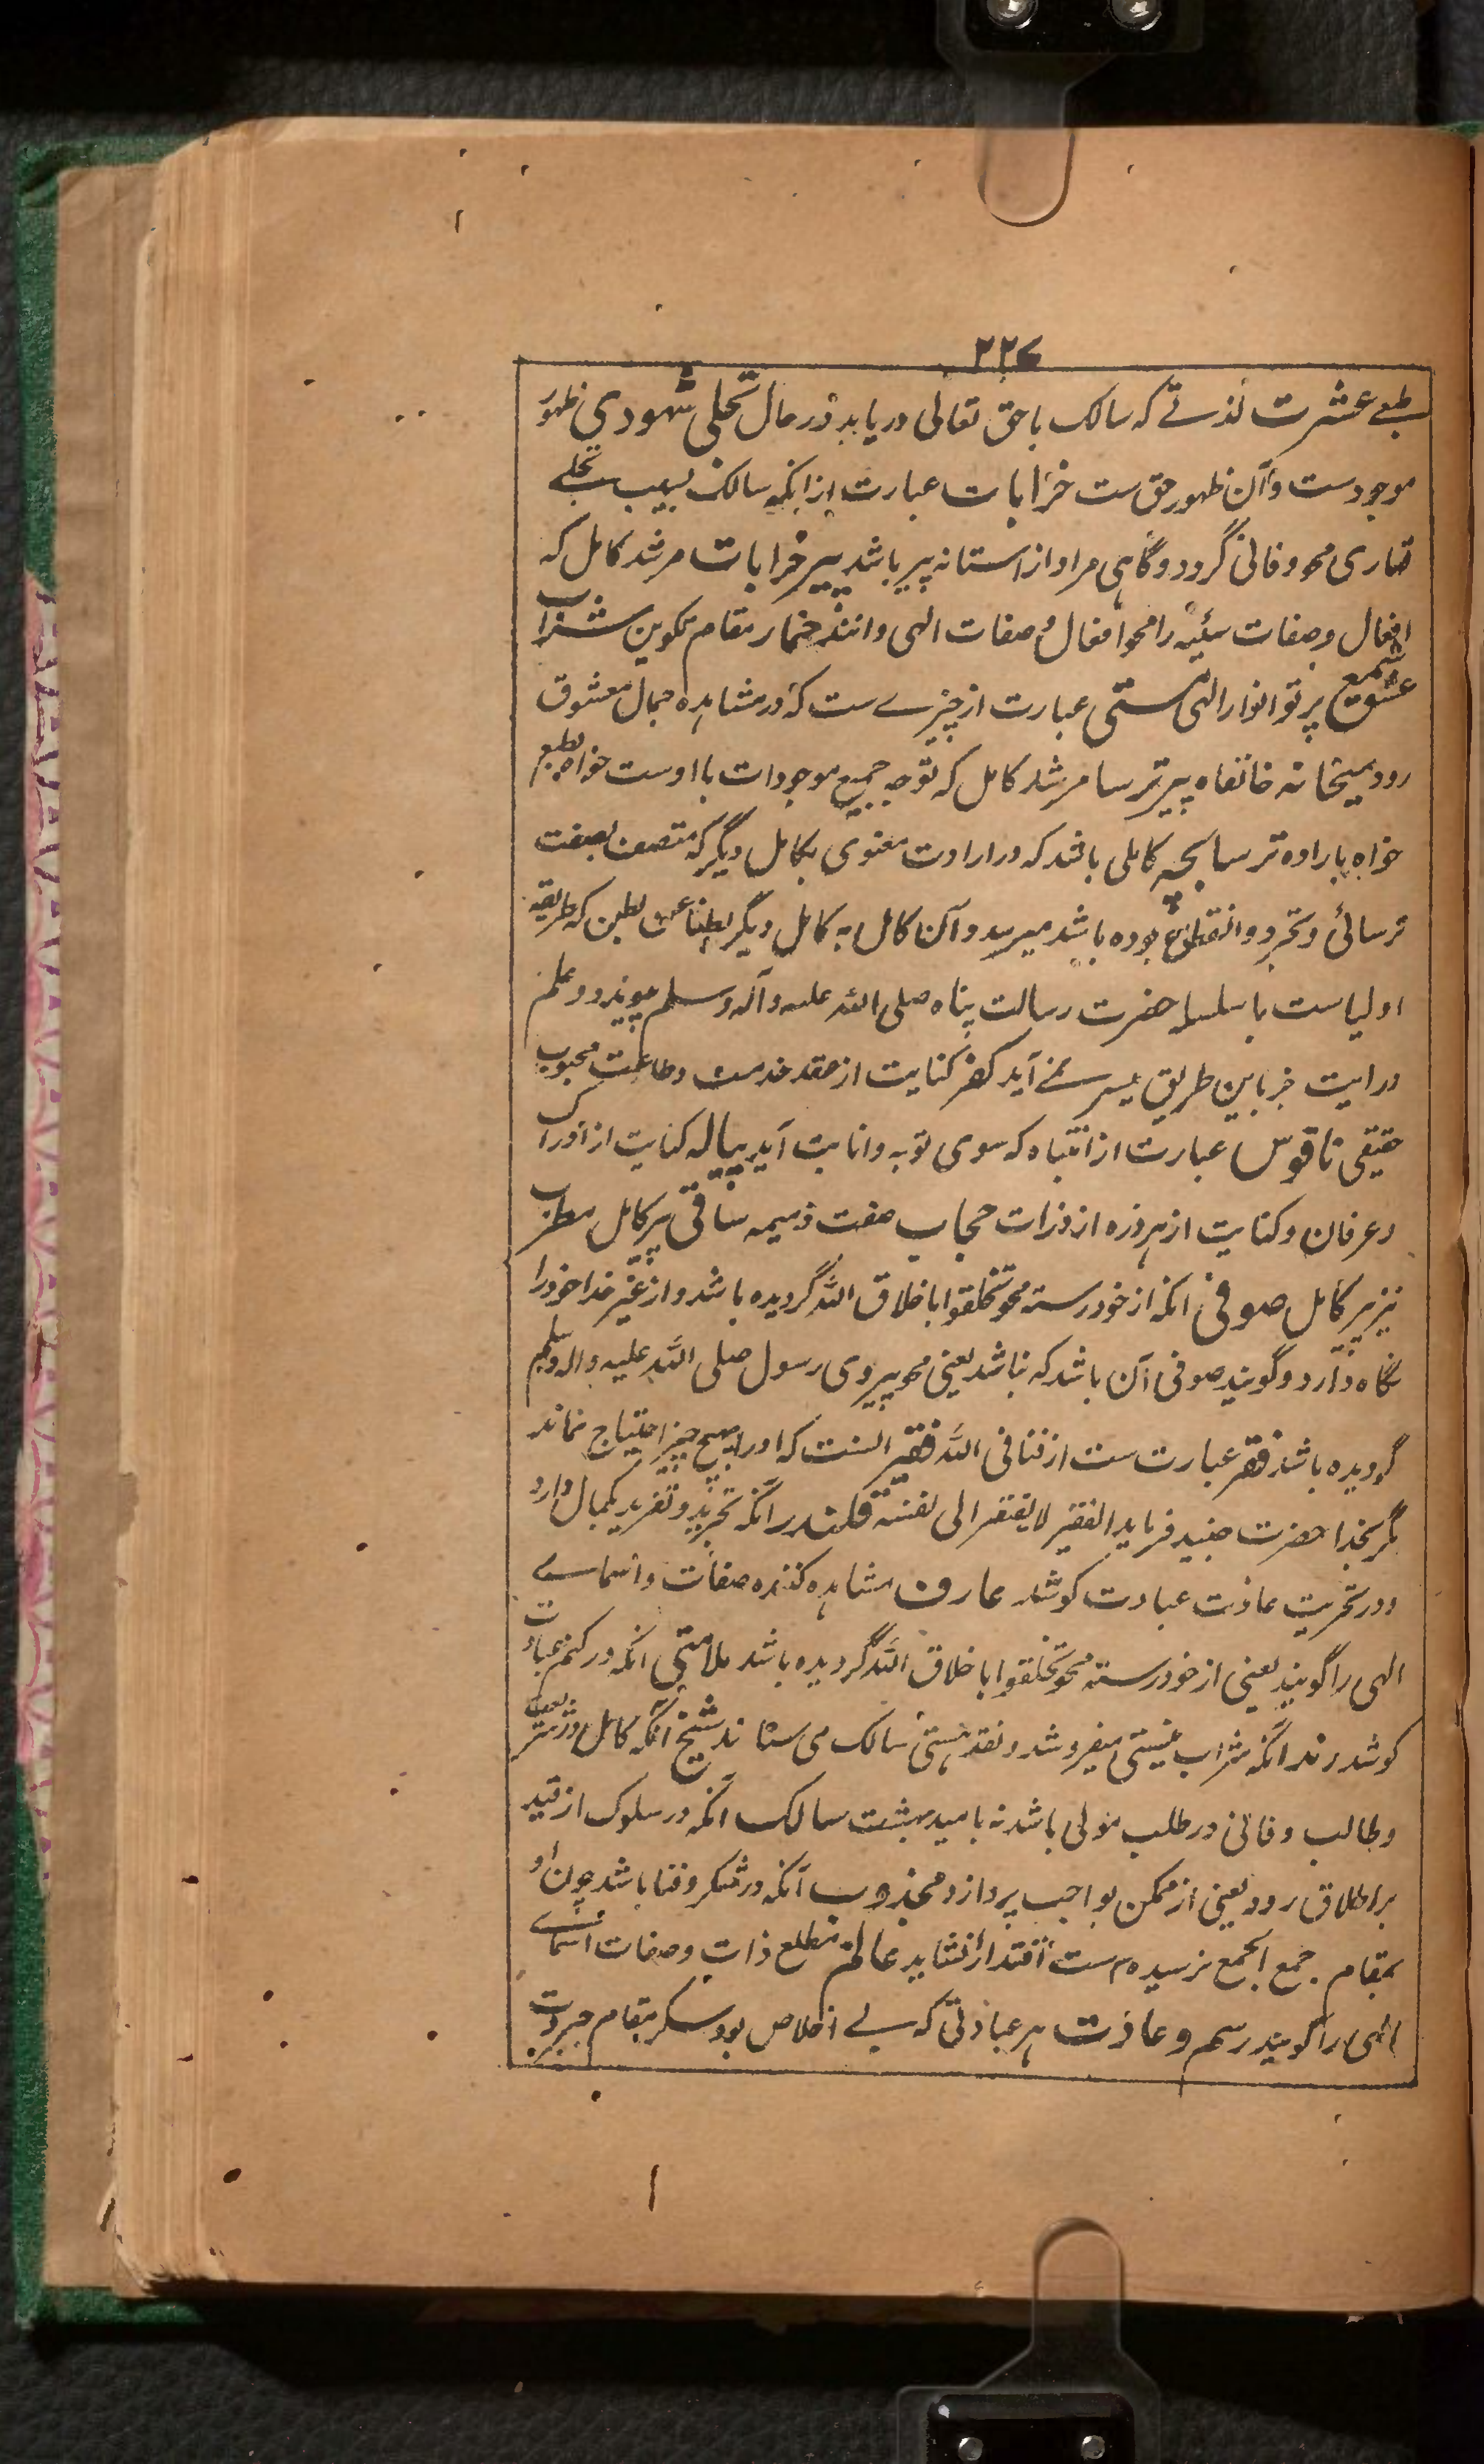 ۲۲۷
بطبعے عشرت لذتے کہ سالک باحق تعالی دریابد در حال تجلی شہودی ظہور
موجودست وآن ظہور حق ست خرابات عبارت از انکہ سالک بسبب تجلے
قہاری محو وفانی گردد وگاہی مراد از استانہ پیر باشد پیر خرابات مرشد کامل کہ
افعال وصفات سئیہ را محو افعال وصفات الہی دانند خمار مقام تکوین شراب
عشق شمع پرتو انوار الہی مستی عبارت از چیزے ست کہ در مشاہدہ جمال معشوق
رود میخانہ خانقاہ پیر ترسا مرشد کامل کہ توجہ جمیع موجودات با اوست خواہ بطبع
خواہ بارادہ ترسا بچہ کاملی باشد کہ در ارادت معنوی بکامل دیگر کہ متصف بصفت
ترسائی وتجرد وانقطاع بودہ باشد میرسد وآن کامل بہ کامل دیگر بطناً عن بطن کہ طریقہ
اولیاست با سلسلہ حضرت رسالت پناہ صلی اللہ علیہ وآلہ وسلم میپیوندد وعلم
درایت جز باین طریق میسر نمے آید کفر کنایت از عقد خدمت وطاعت محبوب
حقیقی ناقوس عبارت از انتباہ کہ سوی توبہ وانابت آید پیالہ کنایت از ادراک
وعرفان وکنایت از ہر ذرہ از ذرات حجاب صفت ذمیمہ ساقی پیر کامل مطرب
نیز پیر کامل صوفی انکہ از خود رستہ محو تخلقوا باخلاق اللہ گردیدہ باشد واز غیر خدا خود را
نگاہ دارد وگویند صوفی آن باشد کہ نباشد یعنی محو پیروی رسول صلی اللہ علیہ والہ وسلم
گردیدہ باشد فقر عبارت ست از فنا فی اللہ فقیر انست کہ اورا بہیچ چیز احتیاج نماند
مگر بخدا حضرت جنید فرماید الفقیر لا یفتقر الی نفسہ قلندر انکہ تجرید وتفرید بکمال دارد
ودر تخریب عادت عبادت کوشد عارف مشاہدہ کنندہ صفات واسماے
الہی را گویند یعنی از خود رستہ محو تخلقوا باخلاق اللہ گردیدہ باشد ملامتی انکہ در کتم عبادت
کوشد رند انکہ شراب نیستی میفروشد ونقد ہستی سالک می ستاند شیخ آنکہ کامل در شریعت
وطالب وفانی در طلب مولی باشد نہ بامید بہشت سالک انکہ در سلوک از قید
براطلاق رود یعنی از ممکن بواجب پردازد مجذوب آنکہ در سکر وفنا باشد چون او
بمقام جمع الجمع نرسیدہ ست اقتدا را نشاید عالم مطلع ذات وصفات اسماے
الہی را گویند رسم وعادت ہر عبادتی کہ بے اخلاص بود سکر بمقام جبروت